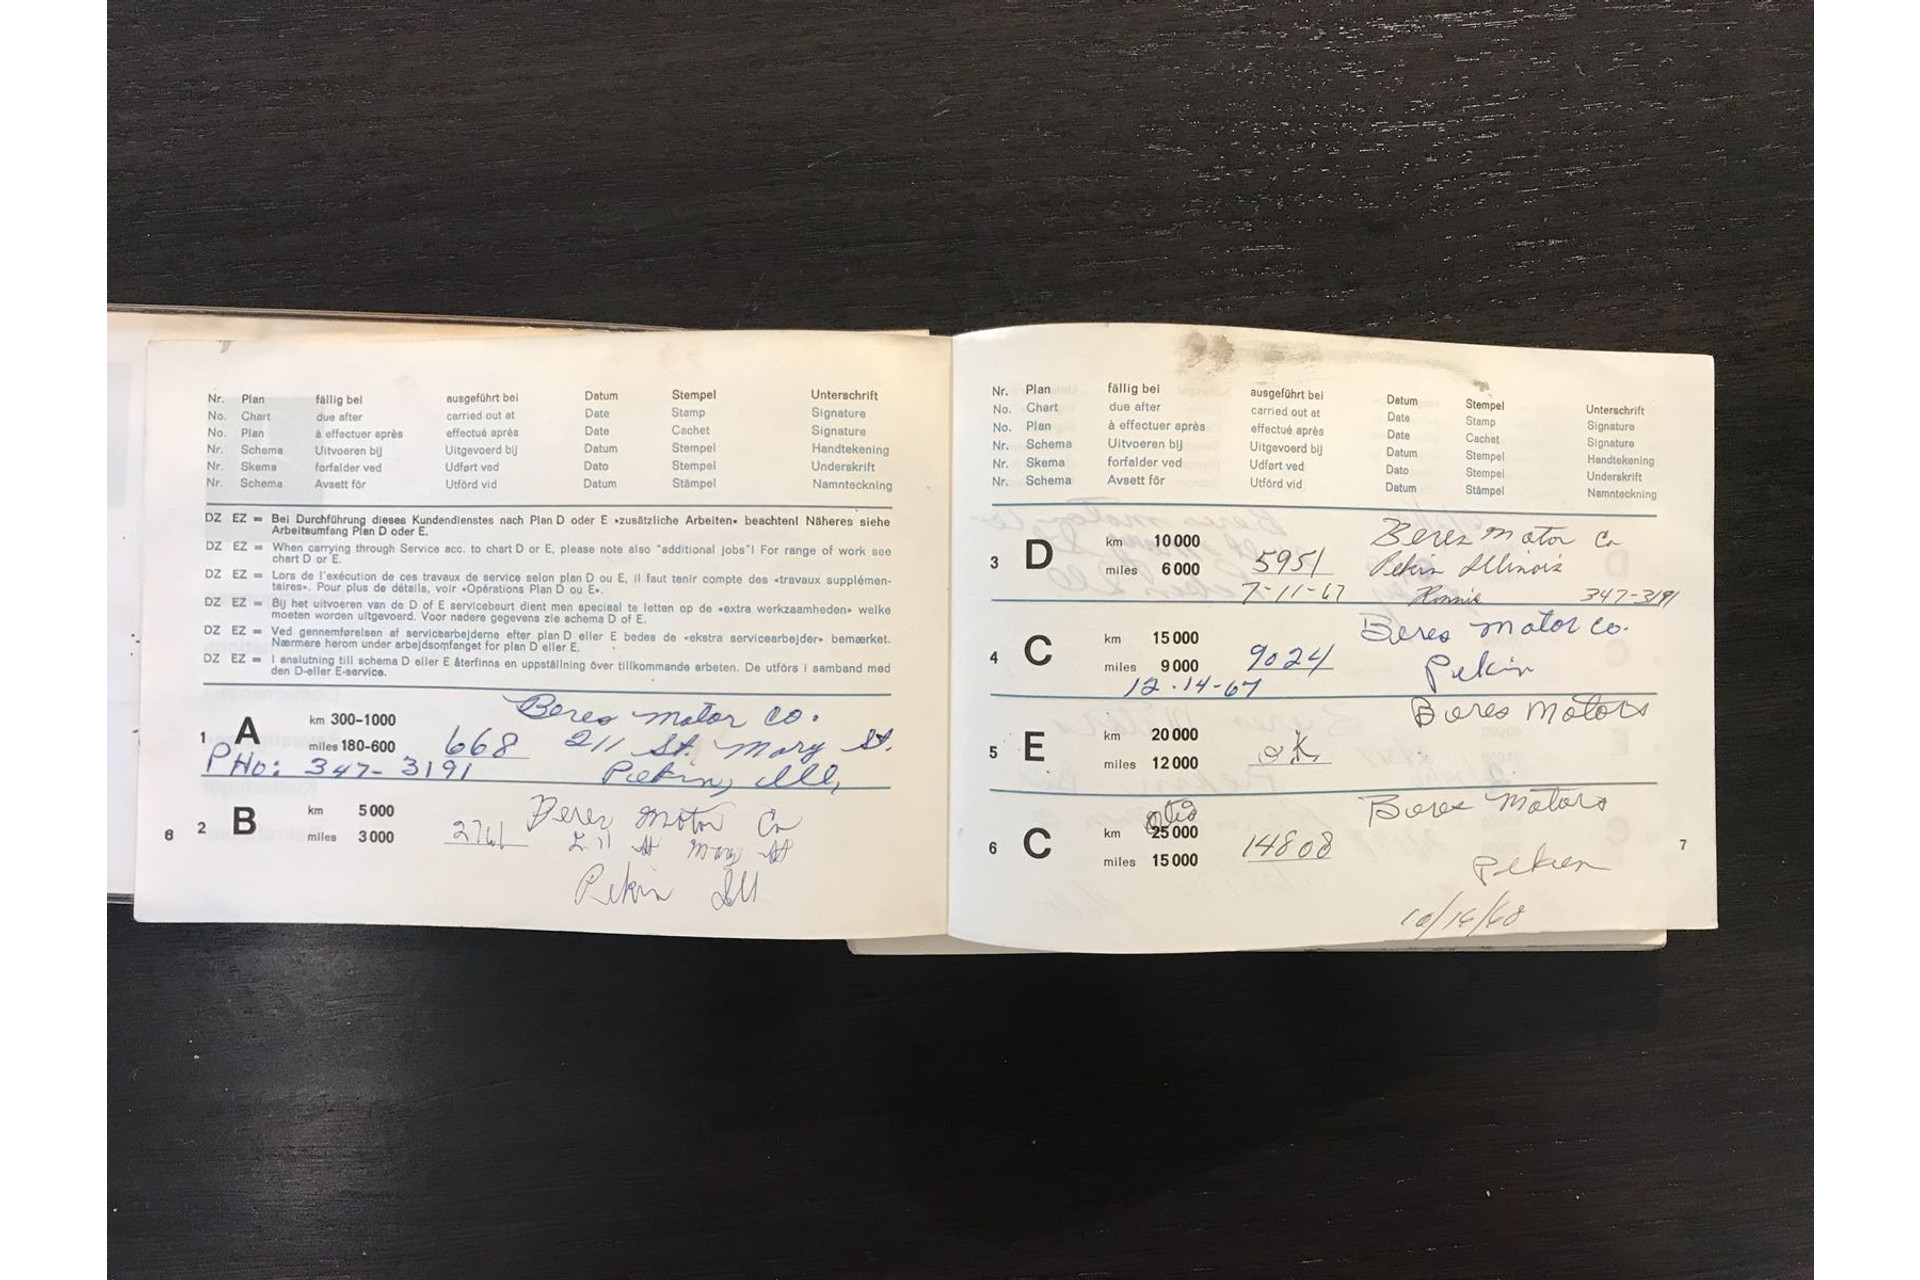 Nr. Plan fällig bei ausgeführt bei Datum Stempel Unterschrift
No. Chart due after carried out at Date Stamp Signature
No. Plan à effectuer après effectué après Date Cachet Signature
Nr. Schema Uitvoeren bij Uitgevoerd bij Datum Stempel Handtekening
Nr. Skema forfalder ved Udført ved Dato Stempel Underskrift
Nr. Schema Avsett för Utförd vid Datum Stämpel Namnteckning
DZ EZ = Bei Durchführung dieses Kundendienstes nach Plan D oder E »zusätzliche Arbeiten« beachten! Näheres siehe
Arbeitsumfang Plan D oder E.
DZ EZ = When carrying through Service acc. to chart D or E, please note also "additional jobs"! For range of work see
chart D or E.
DZ EZ = Lors de l'exécution de ces travaux de service selon plan D ou E, il faut tenir compte des «travaux supplémen-
taires». Pour plus de détails, voir «Opérations Plan D ou E».
DZ EZ = Bij het uitvoeren van de D of E servicebeurt dient men speciaal te letten op de «extra werkzaamheden» welke
moeten worden uitgevoerd. Voor nadere gegevens zie schema D of E.
DZ EZ = Ved gennemførelsen af servicearbejderne efter plan D eller E bedes de «ekstra servicearbejder» bemærket.
Nærmere herom under arbejdsomfanget for plan D eller E.
DZ EZ = I anslutning till schema D eller E återfinns en uppställning över tillkommande arbeten. De utförs i samband med
den D-eller E-service.
Beres Motor Co.
1 A km 300-1000
miles 180-600 668 211 St. Mary St.
PHO: 347-3191 Pekin, Ill,
2 B km 5 000 Beres Motor Co
miles 3 000 2761 211 St Mary St
Pekin Ill
6
Nr. Plan fällig bei ausgeführt bei Datum Stempel Unterschrift
No. Chart due after carried out at Date Stamp Signature
No. Plan à effectuer après effectué après Date Cachet Signature
Nr. Schema Uitvoeren bij Uitgevoerd bij Datum Stempel Handtekening
Nr. Skema forfalder ved Udført ved Dato Stempel Underskrift
Nr. Schema Avsett för Utförd vid Datum Stämpel Namnteckning
3 D km 10 000 Beres Motor Co
miles 6 000 5951 Pekin Illinois
7-11-67 Ronnie 347-3191
4 C km 15 000 Beres Motor Co.
miles 9 000 9024 Pekin
12-14-67
5 E km 20 000 Beres Motors
miles 12 000 ok
6 C km 25 000 Beres Motors
miles 15 000 14808 Pekin
7